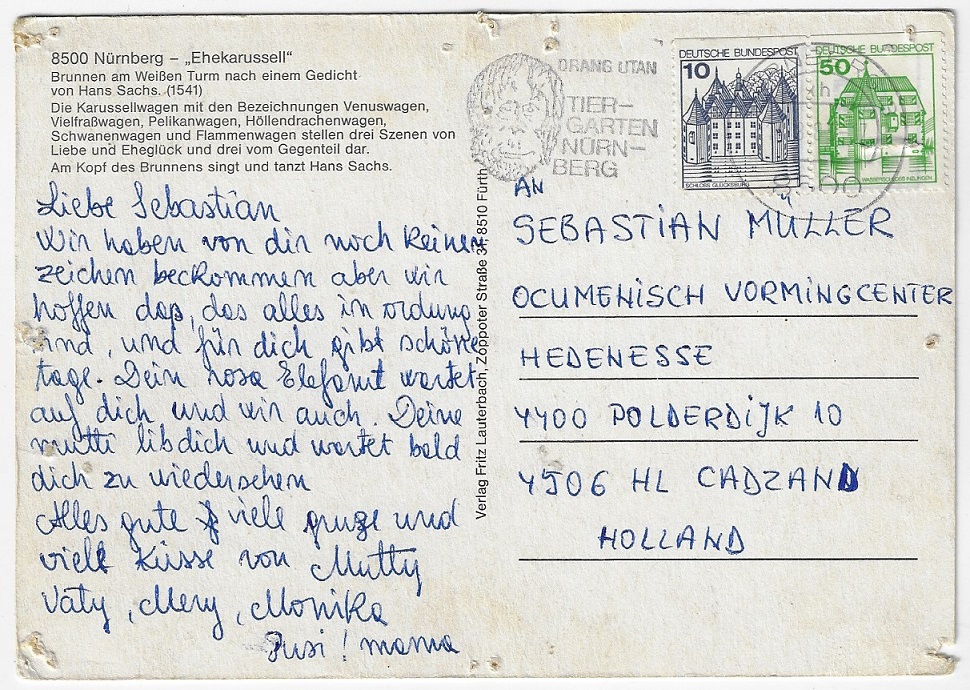 8500 Nürnberg – „Ehekarussell“
Brunnen am Weißen Turm nach einem Gedicht
von Hans Sachs. (1541)
Die Karussellwagen mit den Bezeichnungen Venuswagen,
Vielfraßwagen, Pelikanwagen, Höllendrachenwagen,
Schwanenwagen und Flammenwagen stellen drei Szenen von
Liebe und Eheglück und drei vom Gegenteil dar.
Am Kopf des Brunnens singt und tanzt Hans Sachs.
Liebe Sebastian
Wir haben von dir noch keinen
zeichen beckommen aber wir
hoffen das, das alles in ordung
sind, und für dich gibt schöne
tage. Dein rosa Elefant wartet
auf dich und wir auch. Deine
mutti libdich und wartet bald
dich zu wiedersehen
Alles gute viele gruze und
viele Küsse von Mutty
Vaty, Mery, Monika
Pusi! mama
Verlag Fritz Lauterbach, Zoppoter Straße 31, 8510 Fürth
ORANG UTAN
TIER–
GARTEN
NÜRN–
BERG
DEUTSCHE BUNDESPOST
10
SCHLOSS GLÜCKSBURG
DEUTSCHE BUNDESPOST
50
WASSERSCHLOSS INZLINGEN
AN
SEBASTIAN MÜLLER
OCUMENISCH VORMINGCENTER
HEDENESSE
4400 POLDERDIJK 10
4506 HL CADZAND
HOLLAND